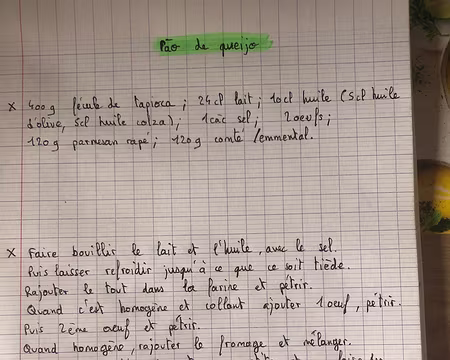 Pão de queijo
x 400g fécule de tapioca ; 24cl lait ; 10cl huile (5cl huile
d'olive, 5cl huile colza) ; 1càc sel ; 2 oeufs ;
120g parmesan rapé ; 120g comté /emmental.
x Faire bouillir le lait et l'huile, avec le sel.
Puis laisser refroidir jusqu'à ce que ce soit tiède.
Rajouter le tout dans la farine et pétrir.
Quand c'est homogène et collant ajouter 1 oeuf, pétrir.
Puis 2ème oeuf et pétrir.
Quand homogène, rajouter le fromage et mélanger.